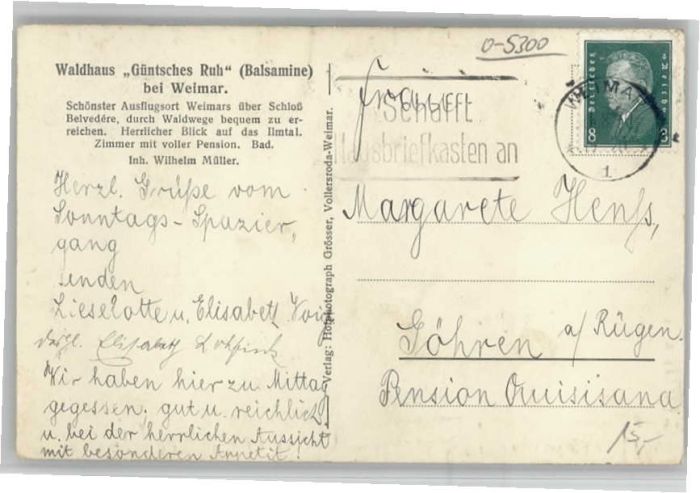 0-5300
Waldhaus „Güntsches Ruh" (Balsamine)
bei Weimar.
Schönster Ausflugsort Weimars über Schloß
Belvedére, durch Waldwege bequem zu er-
reichen. Herrlicher Blick auf das Ilmtal.
Zimmer mit voller Pension. Bad.
Inh. Wilhelm Müller.
Herzl. Grüße vom
Sonntags-Spazier,
gang
senden
Lieselotte u. Elisabeth
desgl. Elisabeth
Wir haben hier zu Mittag
gegessen. gut u. reichlich!
u. bei der herrlichen Aussicht
mit besonderen Appetit!
Verlag: Hofphotograph Grösser, Vollersroda-Weimar.
Schafft
Hausbriefkasten an
Deutsches Reich
8 8
WEIMAR
1
Margarete Henß,
Göhren a/Rügen.
Pension Quisisana
15,-